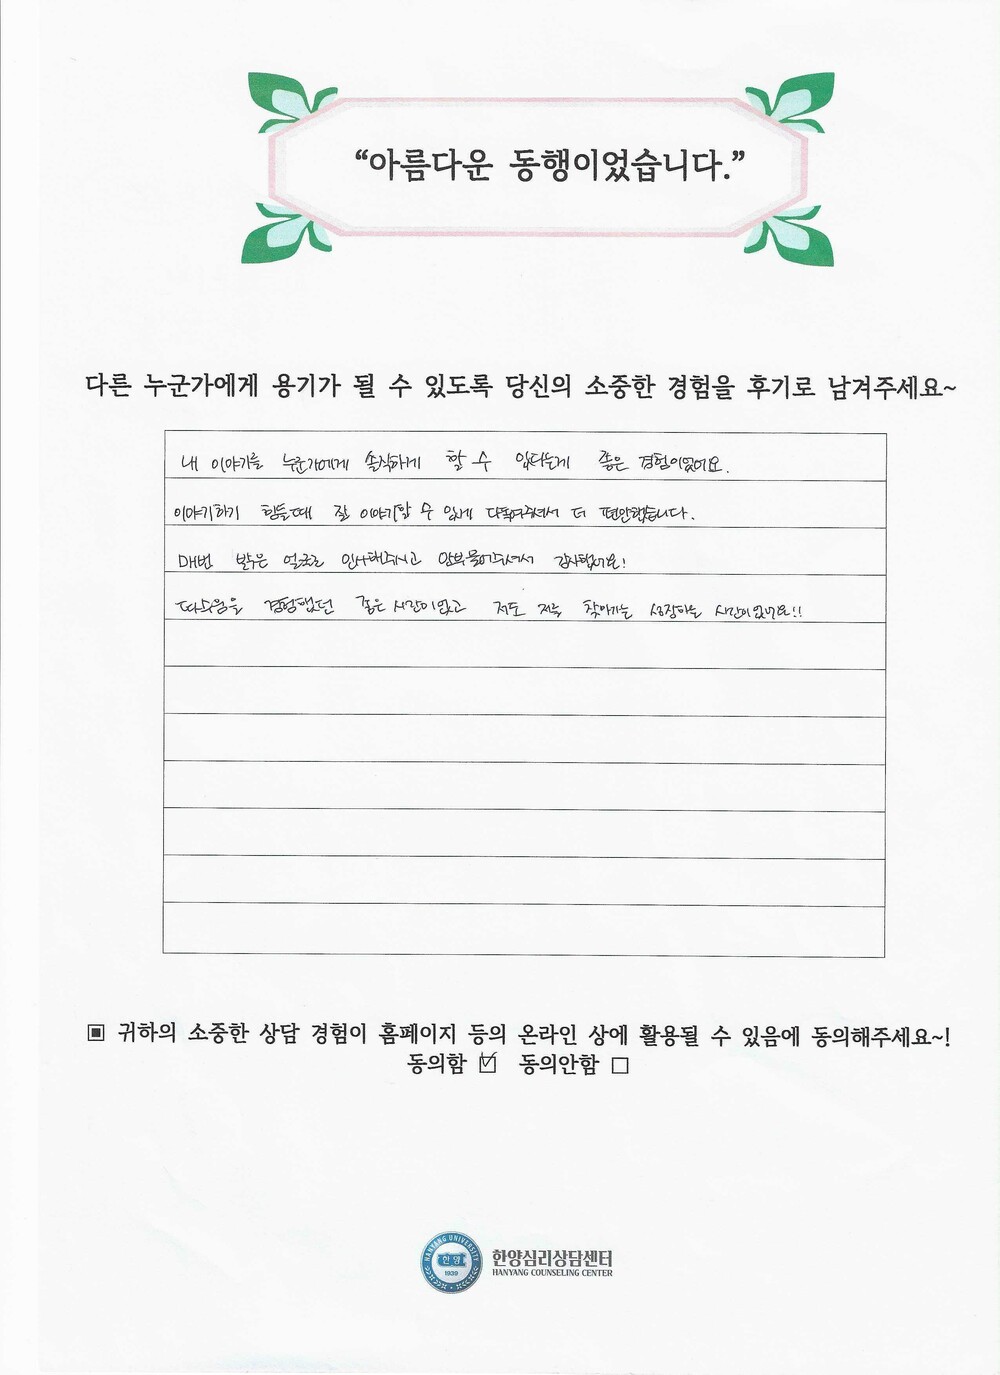 “아름다운 동행이었습니다.”
다른 누군가에게 용기가 될 수 있도록 당신의 소중한 경험을 후기로 남겨주세요~
내 이야기를 누군가에게 솔직하게 할 수 있다는게 좋은 경험이었어요.
이야기하기 힘들때 잘 이야기할 수 있게 다독여주셔서 더 편안했습니다.
매번 밝은 얼굴로 인사해주시고 안부물어주셔서 감사했어요!
따스움을 경험했던 좋은 시간이었고 저도 저를 찾아가는 성장하는 시간이었어요!!
▣ 귀하의 소중한 상담 경험이 홈페이지 등의 온라인 상에 활용될 수 있음에 동의해주세요~!
동의함 ☑ 동의안함 □
HANYANG UNIVERSITY
한양
1939
한양심리상담센터
HANYANG COUNSELING CENTER